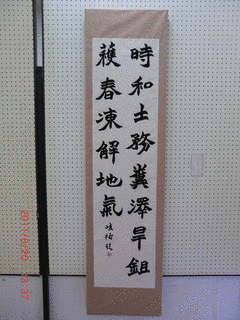 時和土務糞澤旱鉏
穫春凍解地氣
2011/6/25 13:37